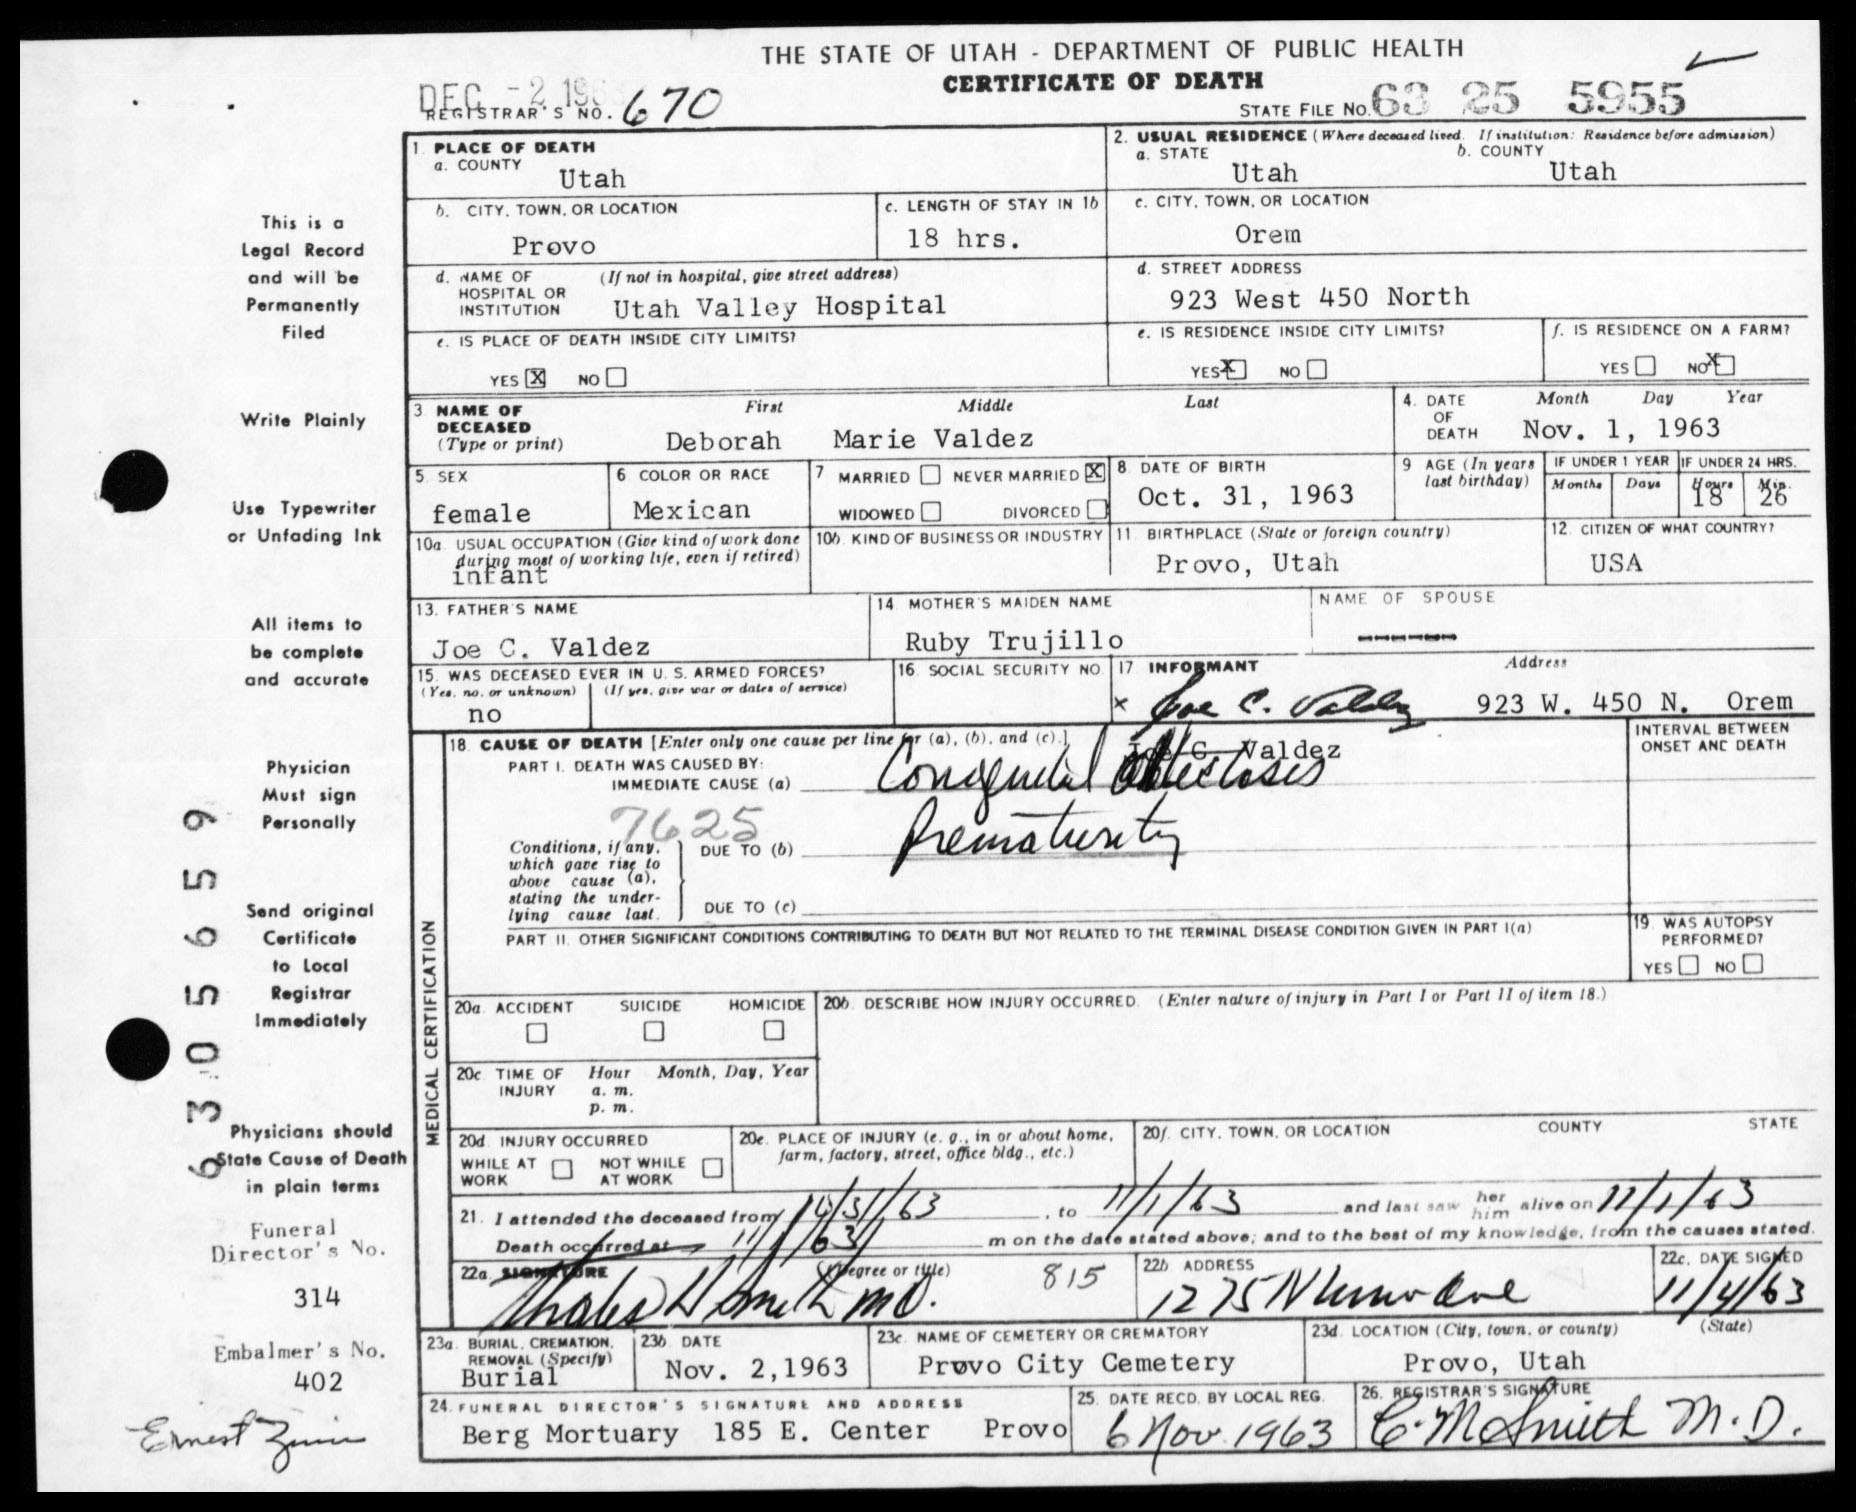 THE STATE OF UTAH - DEPARTMENT OF PUBLIC HEALTH
CERTIFICATE OF DEATH
DEC -2 196
REGISTRAR'S NO. 670
STATE FILE NO. 63 25 5955
1. PLACE OF DEATH
a. COUNTY
Utah
2. USUAL RESIDENCE (Where deceased lived. If institution: Residence before admission)
a. STATE b. COUNTY
Utah Utah
b. CITY, TOWN, OR LOCATION
Provo
c. LENGTH OF STAY IN 1b
18 hrs.
c. CITY, TOWN, OR LOCATION
Orem
d. NAME OF HOSPITAL OR INSTITUTION (If not in hospital, give street address)
Utah Valley Hospital
d. STREET ADDRESS
923 West 450 North
e. IS PLACE OF DEATH INSIDE CITY LIMITS?
YES X NO
e. IS RESIDENCE INSIDE CITY LIMITS?
YES X NO
f. IS RESIDENCE ON A FARM?
YES NO X
3 NAME OF DECEASED (Type or print)
First Middle Last
Deborah Marie Valdez
4. DATE OF DEATH
Month Day Year
Nov. 1, 1963
5. SEX
female
6 COLOR OR RACE
Mexican
7 MARRIED NEVER MARRIED X
WIDOWED DIVORCED
8. DATE OF BIRTH
Oct. 31, 1963
9 AGE (In years last birthday)
IF UNDER 1 YEAR
Months Days
IF UNDER 24 HRS.
Hours Min.
18 26
10a. USUAL OCCUPATION (Give kind of work done during most of working life, even if retired)
infant
10b. KIND OF BUSINESS OR INDUSTRY
11. BIRTHPLACE (State or foreign country)
Provo, Utah
12. CITIZEN OF WHAT COUNTRY?
USA
13. FATHER'S NAME
Joe C. Valdez
14. MOTHER'S MAIDEN NAME
Ruby Trujillo
NAME OF SPOUSE
-------
15. WAS DECEASED EVER IN U. S. ARMED FORCES?
(Yes, no, or unknown) (If yes, give war or dates of service)
no
16. SOCIAL SECURITY NO.
17. INFORMANT Address
x Joe C. Valdez 923 W. 450 N. Orem
Joe C. Valdez
MEDICAL CERTIFICATION
18. CAUSE OF DEATH [Enter only one cause per line for (a), (b), and (c).]
INTERVAL BETWEEN ONSET AND DEATH
PART I. DEATH WAS CAUSED BY:
IMMEDIATE CAUSE (a) Congenital Atelectasis
7625
Conditions, if any, which gave rise to above cause (a), stating the underlying cause last.
DUE TO (b) Prematurity
DUE TO (c)
PART II. OTHER SIGNIFICANT CONDITIONS CONTRIBUTING TO DEATH BUT NOT RELATED TO THE TERMINAL DISEASE CONDITION GIVEN IN PART I(a)
19. WAS AUTOPSY PERFORMED?
YES NO
20a. ACCIDENT SUICIDE HOMICIDE
20b. DESCRIBE HOW INJURY OCCURRED. (Enter nature of injury in Part I or Part II of item 18.)
20c. TIME OF INJURY Hour Month, Day, Year
a. m.
p. m.
20d. INJURY OCCURRED
WHILE AT WORK NOT WHILE AT WORK
20e. PLACE OF INJURY (e. g., in or about home, farm, factory, street, office bldg., etc.)
20f. CITY, TOWN, OR LOCATION COUNTY STATE
21. I attended the deceased from 10/31/63, to 11/1/63 and last saw her him alive on 11/1/63
Death occurred at 11/1/63 m on the date stated above; and to the best of my knowledge, from the causes stated.
22a. SIGNATURE (Degree or title) 815
Thales H Smith MD.
22b. ADDRESS
1275 N Univ Ave
22c. DATE SIGNED
11/4/63
23a. BURIAL, CREMATION, REMOVAL (Specify)
Burial
23b. DATE
Nov. 2,1963
23c. NAME OF CEMETERY OR CREMATORY
Provo City Cemetery
23d. LOCATION (City, town, or county) (State)
Provo, Utah
24. FUNERAL DIRECTOR'S SIGNATURE AND ADDRESS
Berg Mortuary 185 E. Center Provo
25. DATE RECD. BY LOCAL REG.
6 Nov. 1963
26. REGISTRAR'S SIGNATURE
C. M Smith M.D.
This is a
Legal Record
and will be
Permanently
Filed
Write Plainly
Use Typewriter
or Unfading Ink
All items to
be complete
and accurate
Physician
Must sign
Personally
Send original
Certificate
to Local
Registrar
Immediately
Physicians should
State Cause of Death
in plain terms
Funeral
Director's No.
314
Embalmer's No.
402
Ernest
6 3 0 5 6 5 9